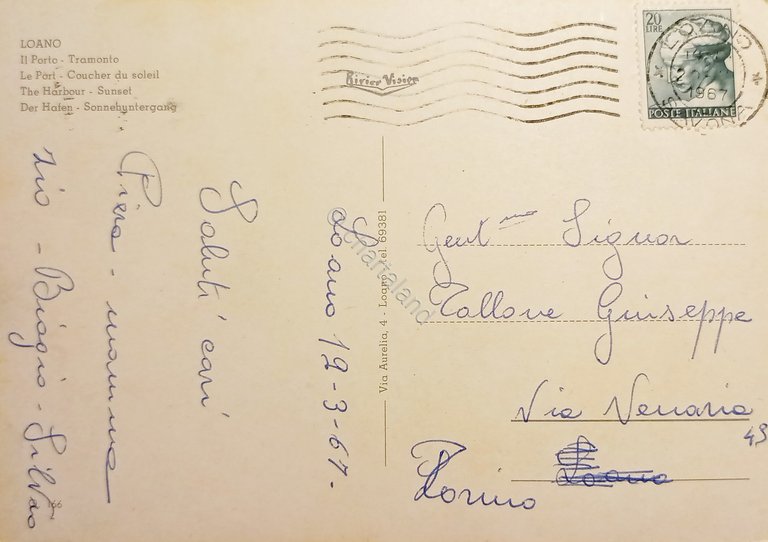 LOANO
Il Porto - Tramonto
Le Port - Coucher du soleil
The Harbour - Sunset
Der Hafen - Sonnenuntergang
Rivier Vision
20
LIRE
POSTE ITALIANE
LOANO
1967
SAVONA
Saluti cari
Piera - mamma
zio - Biagio - Silvao
Loano 12-3-67-
Via Aurelia, 4 - Loano - tel. 69381
chartaland
Gent mo Signor
Tallone Giuseppe
Via Venaria
49
Torino
Loano
166